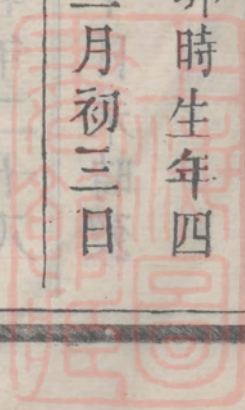 時生年四
月初三日